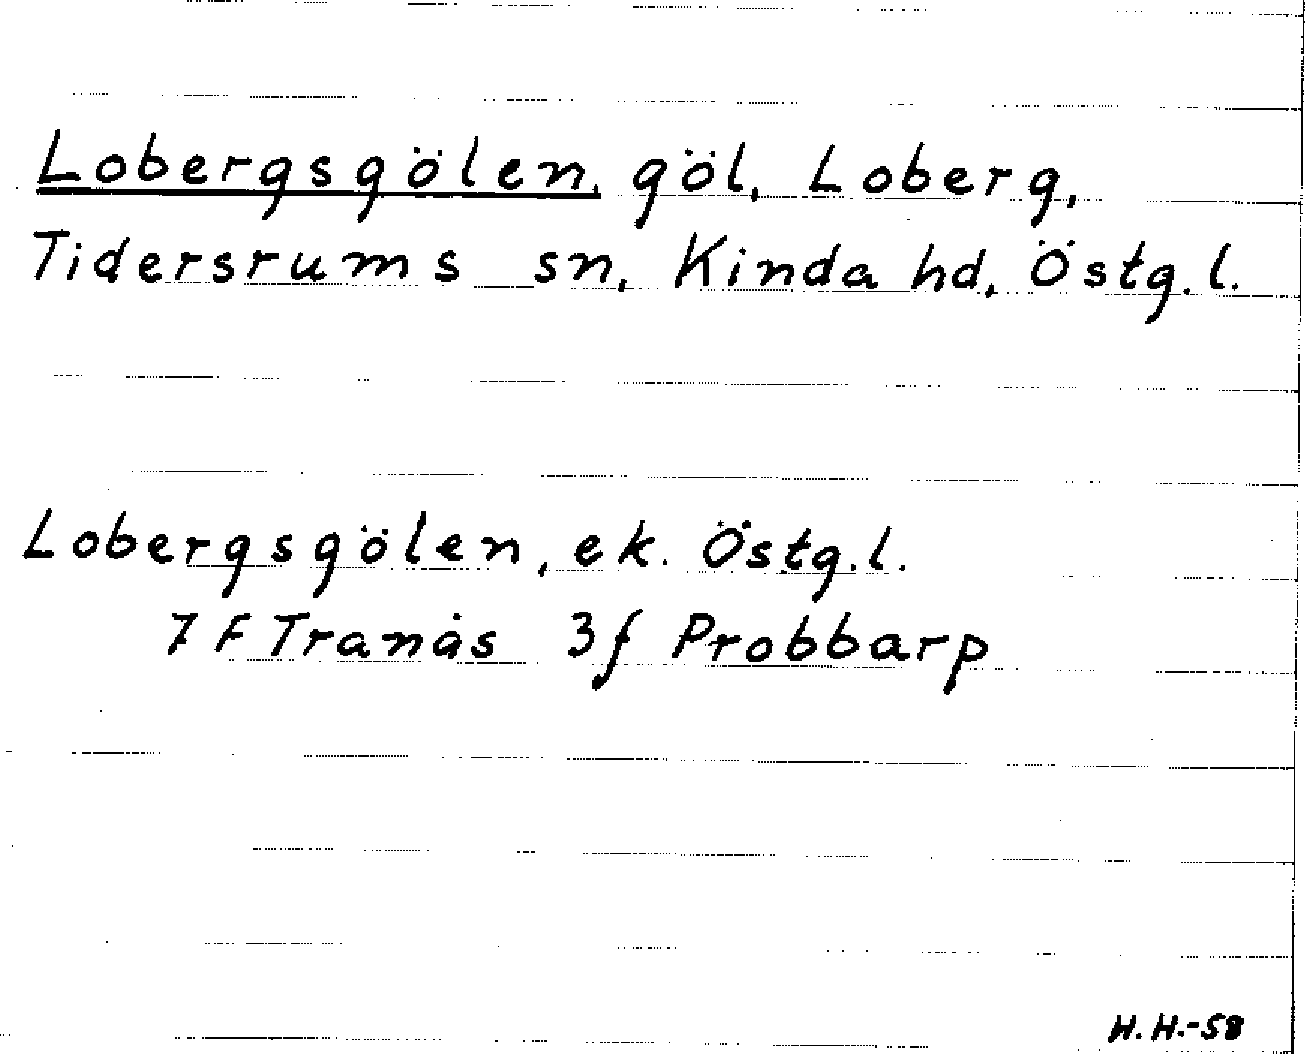 Lobergsgölen, göl, Loberg,
Tidersrums sn, Kinda hd, Östg.l.
Lobergsgölen, ek. Östg.l.
7 F Tranås 3f Probbarp
H.H.-58